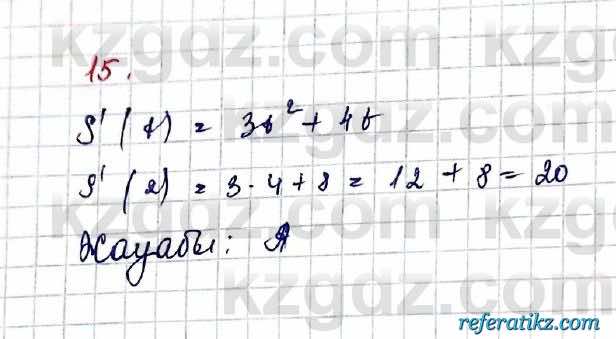 kzgdz.com kzgdz.com
15.
S'(t) = 3t² + 4t
S'(2) = 3·4+8 = 12 + 8 = 20
Жауабы: А
kzgdz.com kzgdz.com
referatikz.com